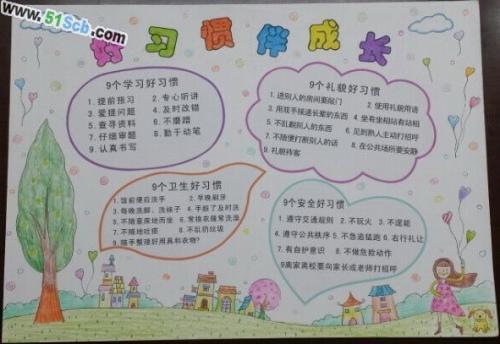 www.51Scb.com
好习惯伴成长
9个学习好习惯
1.提前预习 2.专心听讲
3.爱提问题 4.及时改错
5.查寻资料 6.不磨蹭
7.仔细审题 8.勤于动笔
9.认真书写
9个礼貌好习惯
1.进别人的房间要敲门 2.使用礼貌用语
3.用双手接递长辈的东西 4.坐有坐相站有站相
5.不乱翻别人的东西 6.见到熟人主动打招呼
7.不随便打断别人的话 8.在公共场所要安静
9.礼貌待客
9个卫生好习惯
1.饭前便后洗手 2.早晚刷牙
3.每晚洗脚、洗袜子 4.手脏了及时洗
5.不随意席地而坐 6.常换衣服常洗澡
7.不随地吐痰 8.不乱扔垃圾
9.随手整理好用具和衣物?
9个安全好习惯
1.遵守交通规则 2.不玩火 3.不逞能
4.遵守公共秩序 5.不急追猛跑 6.右行礼让
7.有自护意识 8.不做危险动作
9离家离校要向家长或老师打招呼